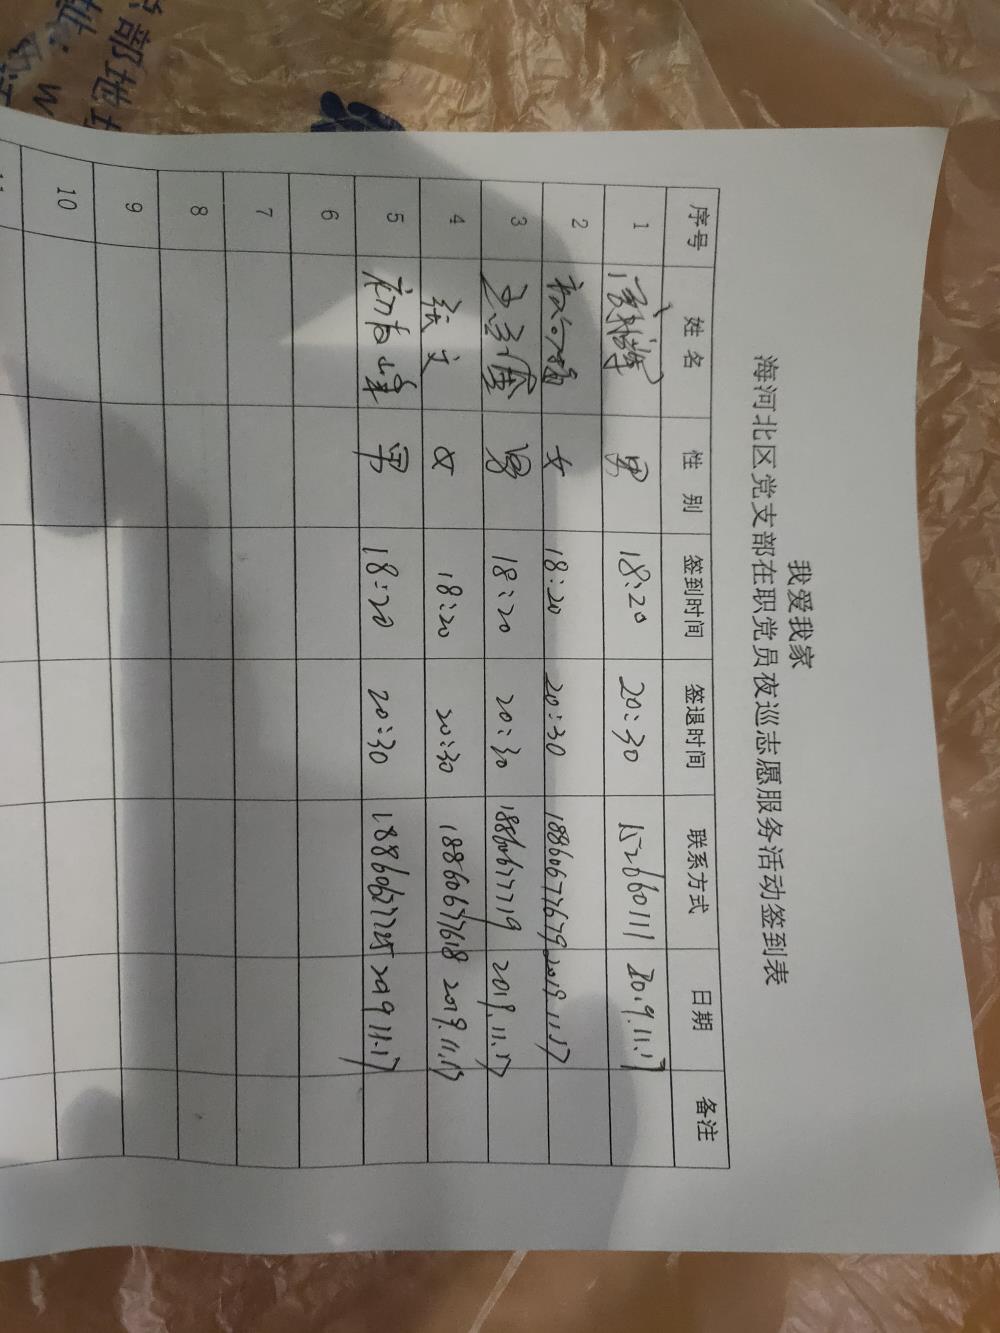 我爱我家
海河北区党支部在职党员夜巡志愿服务活动签到表
序号 姓名 性别 签到时间 签退时间 联系方式 日期 备注
1 男 18:20 20:30 152660111 2019.11.17
2 女 18:20 20:30 18860677679 2019.11.17
3 男 18:20 20:30 18860677719 2019.11.17
4 张文 女 18:20 20:30 18860677618 2019.11.17
5 初古峰 男 18:20 20:30 18860677725 2019.11.17
6
7
8
9
10
11
部地址
W